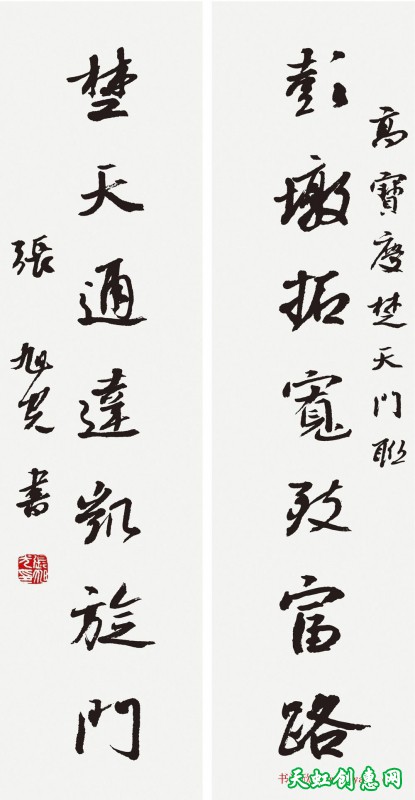 高寶慶楚天門聯
彭墩拓寬致富路
楚天通達凱旋門
張旭光書
天虹创意网